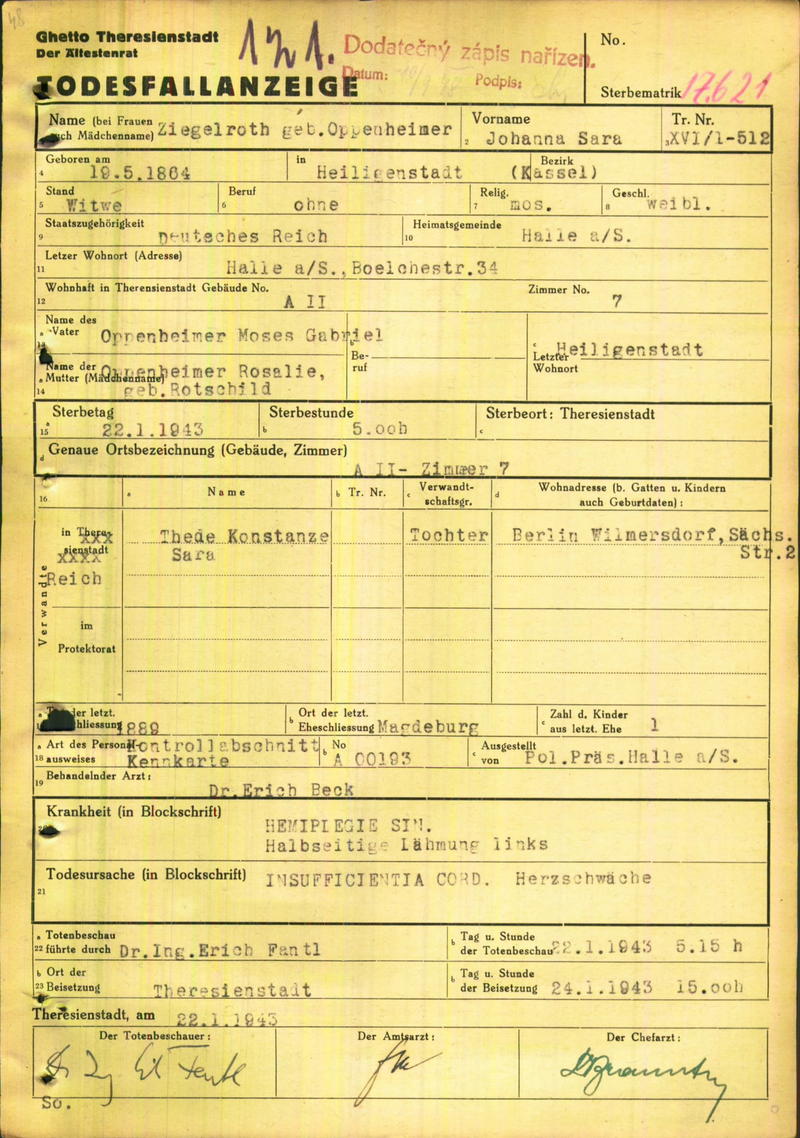 48
Ghetto Theresienstadt
Der Ältestenrat
TODESFALLANZEIGE
121.
Dodatečný zápis nařízen.
Datum:
Podpis:
No.
Sterbematrik 17621
Name (bei Frauen
auch Mädchenname) Ziegelroth geb.Oppenheimer
Vorname
2 Johanna Sara
Tr. Nr.
3 XVI/1-512
Geboren am
4 19.5.1864
in
Heiligenstadt
Bezirk
(Kassel)
Stand
5 Witwe
Beruf
6 ohne
Relig.
7 mos.
Geschl.
8 weibl.
Staatszugehörigkeit
9 Deutsches Reich
Heimatsgemeinde
10 Halle a/S.
Letzer Wohnort (Adresse)
11 Halle a/S.,Boelchestr.34
Wohnhaft in Theresienstadt Gebäude No.
12 A II
Zimmer No.
7
Name des
a Vater Oppenheimer Moses Gabriel
Name der
a Mutter (Mädchenname) Oppenheimer Rosalie,
14 geb.Rotschild
Be-
ruf
c Letzter Heiligenstadt
Wohnort
Sterbetag
15 a 22.1.1943
Sterbestunde
b 5.ooh
Sterbeort: Theresienstadt
c
d Genaue Ortsbezeichnung (Gebäude, Zimmer)
A II- Zimmer 7
16 a Name
b Tr. Nr.
c Verwandt-
schaftsgr.
d Wohnadresse (b. Gatten u. Kindern
auch Geburtdaten):
Verwandte
in There-
sienstadt
XXX
XXXX
Reich
Thede Konstanze
Sara
Tochter
Berlin Wilmersdorf,Sächs.
Str.2
im
Protektorat
a Tag der letzt.
Eheschliessung 1889
b Ort der letzt.
Eheschliessung Magdeburg
c Zahl d. Kinder
aus letzt. Ehe 1
a Art des Personal-
18 ausweises Kontrollabschnitt
Kennkarte
b No
A 00193
c Ausgestellt
von Pol.Präs.Halle a/S.
19 Behandelnder Arzt:
Dr.Erich Beck
Krankheit (in Blockschrift)
HEMIPLEGIE SIN.
Halbseitige Lähmung links
Todesursache (in Blockschrift)
21 INSUFFICIENTIA CORD. Herzschwäche
a Totenbeschau
22 führte durch Dr.Ing.Erich Fantl
b Tag u. Stunde
der Totenbeschau 22.1.1943 5.15 h
b Ort der
23 Beisetzung Theresienstadt
b Tag u. Stunde
der Beisetzung 24.1.1943 15.ooh
Theresienstadt, am 22.1.1943
Der Totenbeschauer:
Der Amtsarzt:
Der Chefarzt:
So.